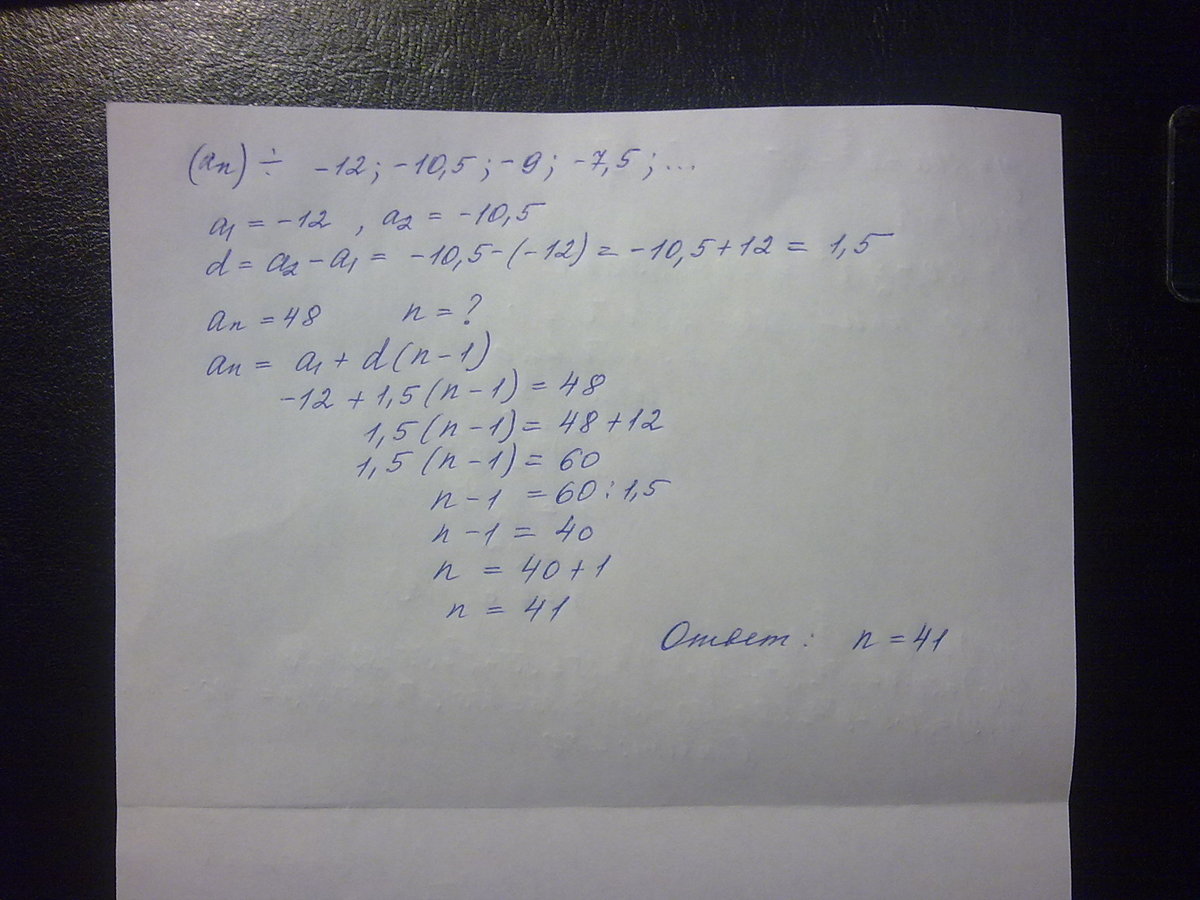 (an) ÷ -12; -10,5; -9; -7,5; ...
a1 = -12 , a2 = -10,5
d = a2 - a1 = -10,5-(-12) = -10,5+12 = 1,5
an = 48 n = ?
an = a1 + d(n-1)
-12 + 1,5(n-1) = 48
1,5(n-1) = 48+12
1,5(n-1) = 60
n-1 = 60:1,5
n-1 = 40
n = 40+1
n = 41
Ответ: n = 41